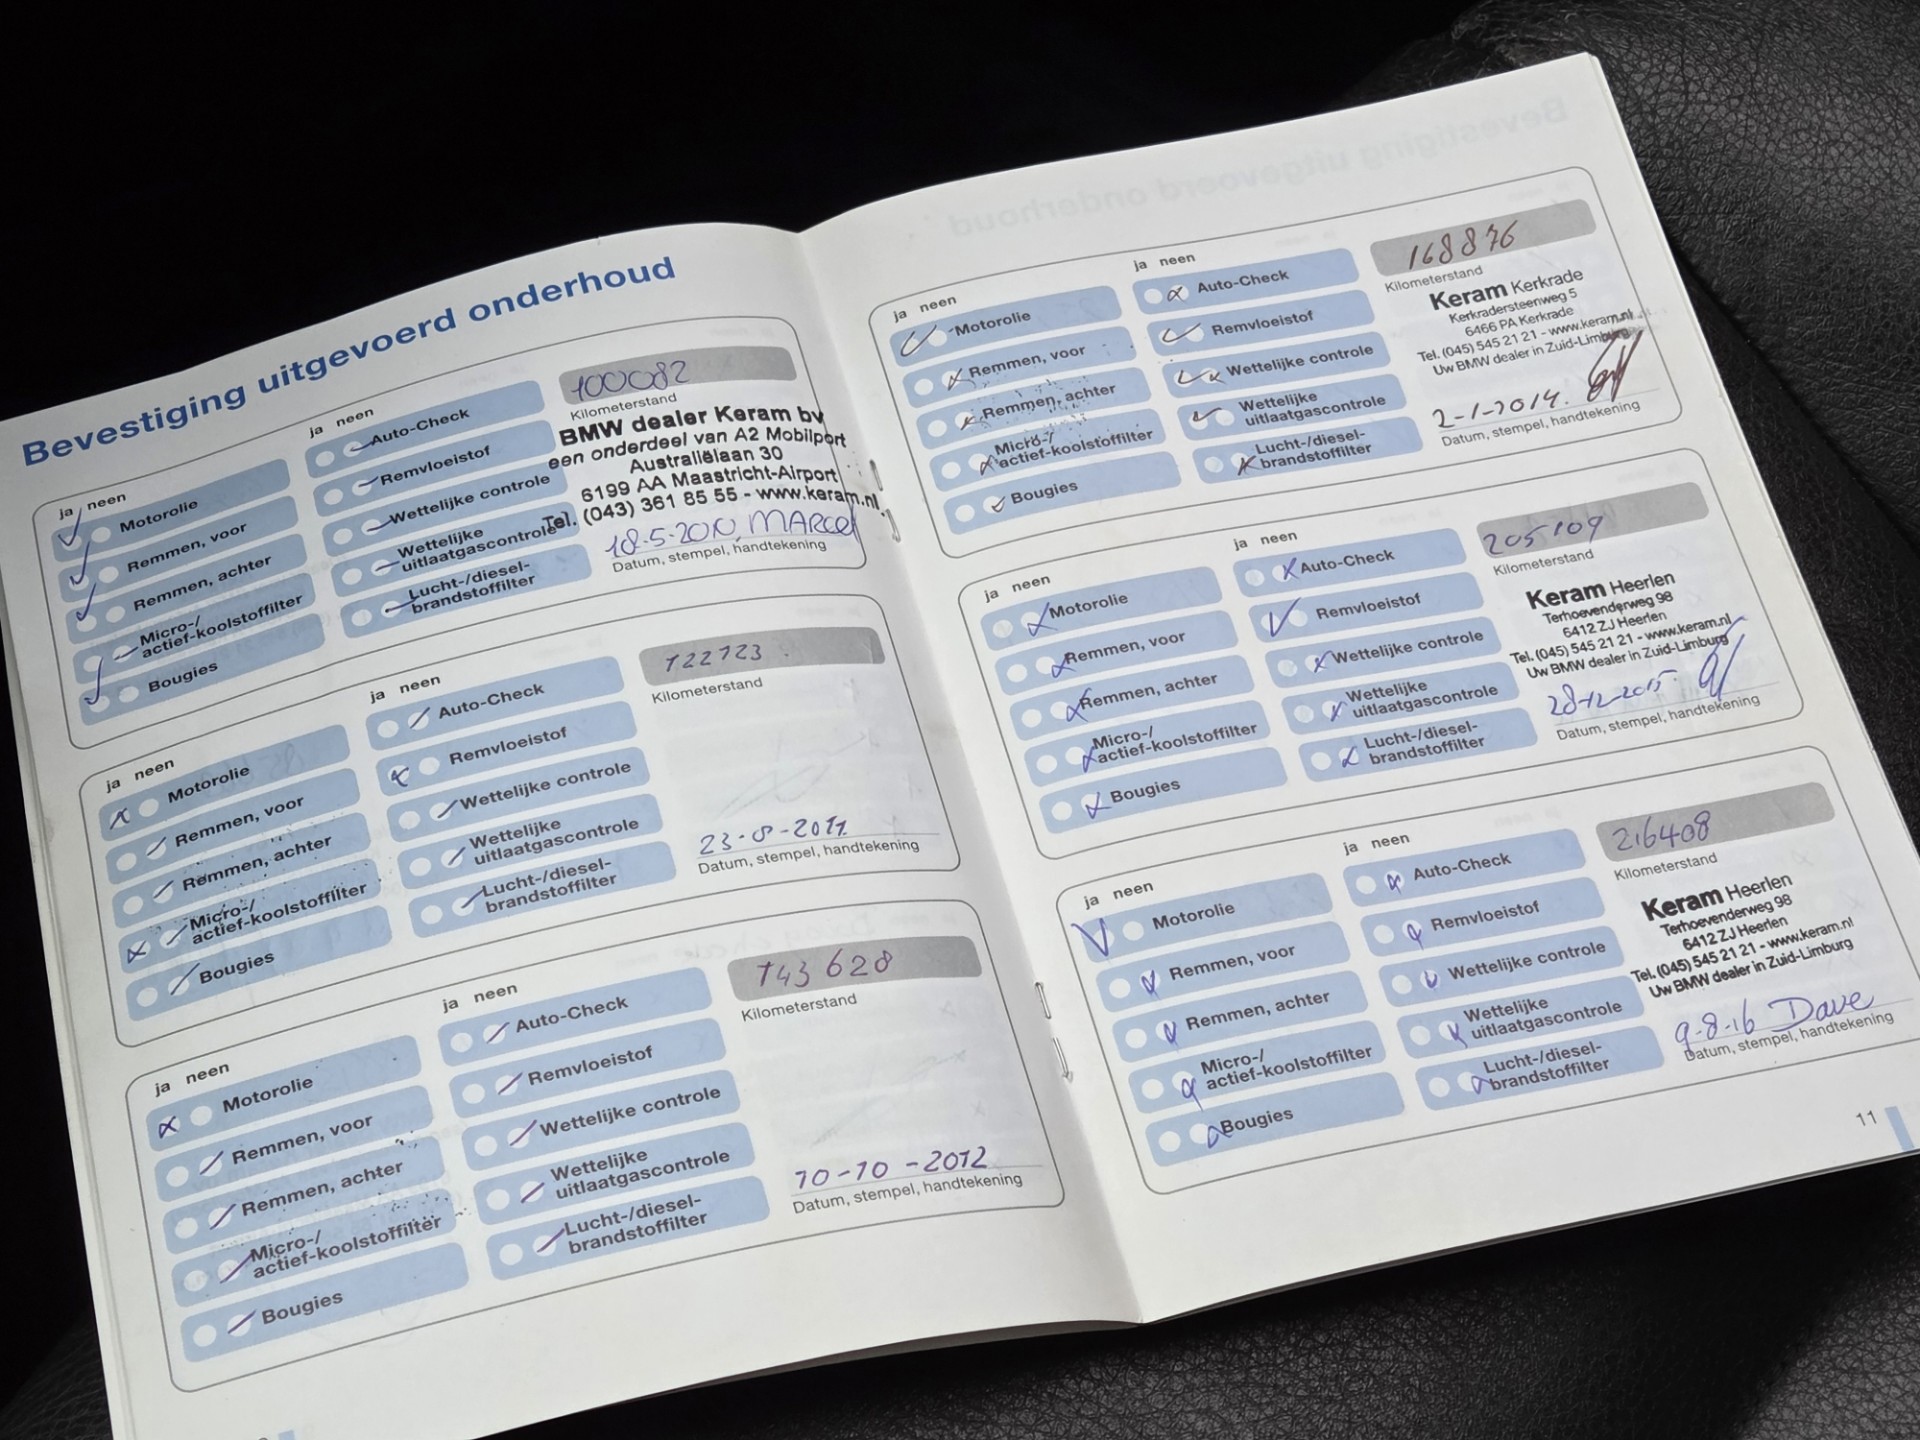 Bevestiging uitgevoerd onderhoud
ja neen
Motorolie
Remmen, voor
Remmen, achter
Micro-/
actief-koolstoffilter
Bougies
ja neen
Auto-Check
Remvloeistof
Wettelijke controle
Wettelijke
uitlaatgascontrole
Lucht-/diesel-
brandstoffilter
100082
Kilometerstand
BMW dealer Keram bv
een onderdeel van A2 Mobilport
Australiëlaan 30
6199 AA Maastricht-Airport
Tel. (043) 361 85 55 - www.keram.nl
18-5-2010, MARCEL
Datum, stempel, handtekening
ja neen
Motorolie
Remmen, voor
Remmen, achter
Micro-/
actief-koolstoffilter
Bougies
ja neen
Auto-Check
Remvloeistof
Wettelijke controle
Wettelijke
uitlaatgascontrole
Lucht-/diesel-
brandstoffilter
122723
Kilometerstand
23-8-2011
Datum, stempel, handtekening
ja neen
Motorolie
Remmen, voor
Remmen, achter
Micro-/
actief-koolstoffilter
Bougies
ja neen
Auto-Check
Remvloeistof
Wettelijke controle
Wettelijke
uitlaatgascontrole
Lucht-/diesel-
brandstoffilter
143628
Kilometerstand
10-10-2012
Datum, stempel, handtekening
ja neen
Motorolie
Remmen, voor
Remmen, achter
Micro-/
actief-koolstoffilter
Bougies
ja neen
Auto-Check
Remvloeistof
Wettelijke controle
Wettelijke
uitlaatgascontrole
Lucht-/diesel-
brandstoffilter
168876
Kilometerstand
Keram Kerkrade
Kerkradersteenweg 5
6466 PA Kerkrade
Tel. (045) 545 21 21 - www.keram.nl
Uw BMW dealer in Zuid-Limburg
2-1-2014.
Datum, stempel, handtekening
ja neen
Motorolie
Remmen, voor
Remmen, achter
Micro-/
actief-koolstoffilter
Bougies
ja neen
Auto-Check
Remvloeistof
Wettelijke controle
Wettelijke
uitlaatgascontrole
Lucht-/diesel-
brandstoffilter
205109
Kilometerstand
Keram Heerlen
Terhoevenderweg 98
6412 ZJ Heerlen
Tel. (045) 545 21 21 - www.keram.nl
Uw BMW dealer in Zuid-Limburg
28-12-2015.
Datum, stempel, handtekening
ja neen
Motorolie
Remmen, voor
Remmen, achter
Micro-/
actief-koolstoffilter
Bougies
ja neen
Auto-Check
Remvloeistof
Wettelijke controle
Wettelijke
uitlaatgascontrole
Lucht-/diesel-
brandstoffilter
216408
Kilometerstand
Keram Heerlen
Terhoevenderweg 98
6412 ZJ Heerlen
Tel. (045) 545 21 21 - www.keram.nl
Uw BMW dealer in Zuid-Limburg
9-8-16 Dave
Datum, stempel, handtekening
11